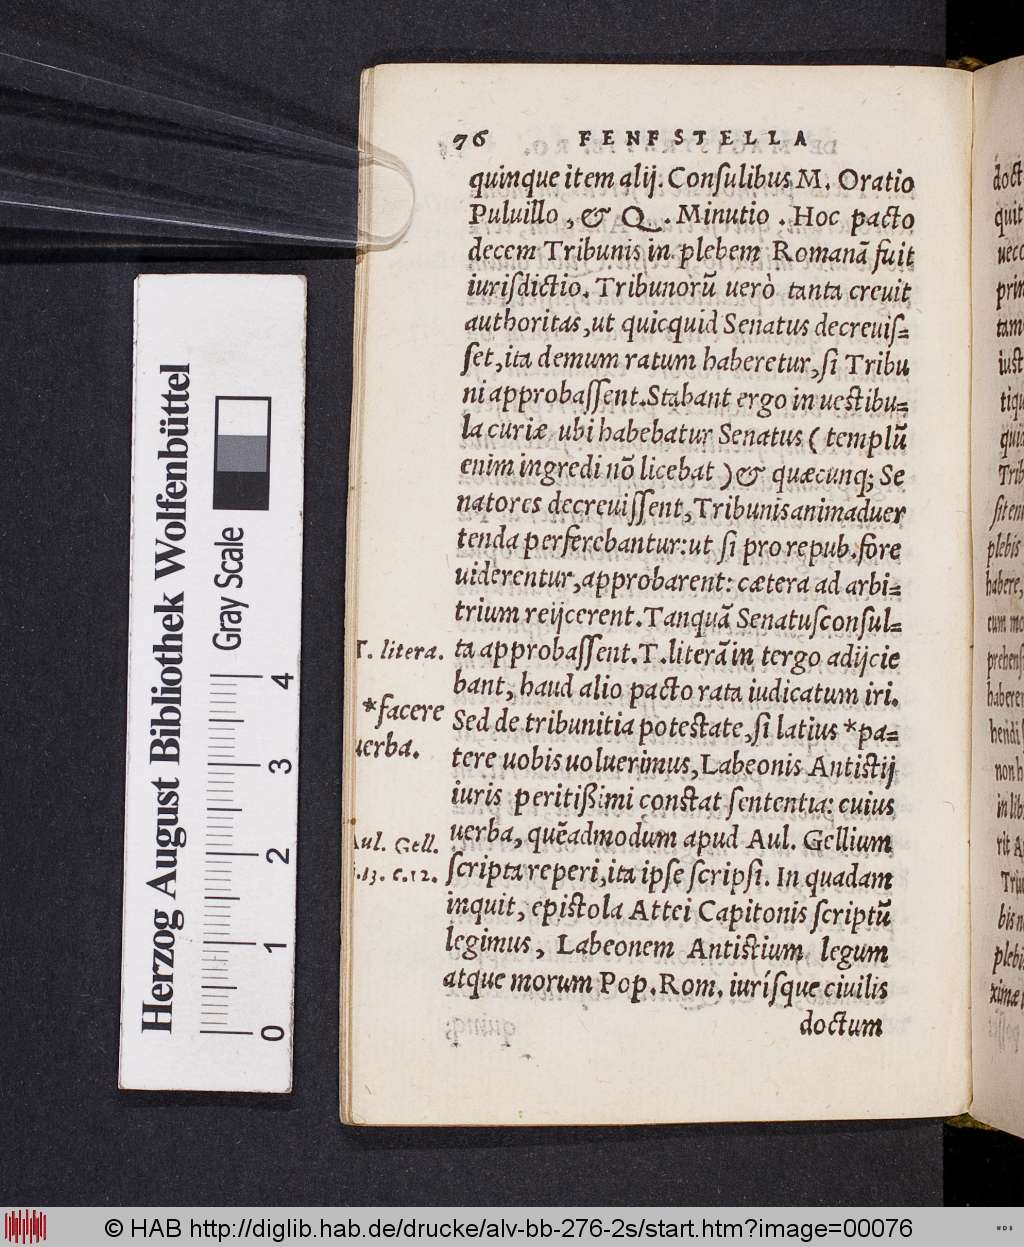 76 FENESTELLA
quinque item alij. Conſulibus M. Oratio
Puluillo, & Q. Minutio. Hoc pacto
decem Tribunis in plebem Romanã fuit
iuriſdictio. Tribunorũ uerò tanta creuit
authoritas, ut quicquid Senatus decreuiſ=
ſet, ita demum ratum haberetur, ſi Tribu
ni approbaſſent. Stabant ergo in ueſtibu=
la curiæ ubi habebatur Senatus ( templũ
enim ingredi nõ licebat ) & quæcunq; Se
natores decreuiſſent, Tribunis animaduer
tenda perferebantur: ut ſi pro repub. fore
uiderentur, approbarent: cætera ad arbi=
trium reijcerent. Tanquã Senatuſconſul=
T. litera.
ta approbaſſent. T. literã in tergo adijcie
bant, haud alio pacto rata iudicatum iri.
*facere
Sed de tribunitia poteſtate, ſi latius *pa=
uerba.
tere uobis uoluerimus, Labeonis Antiſtij
iuris peritißimi conſtat ſententia: cuius
uerba, quẽadmodum apud Aul. Gellium
Aul. Gell.
13. c. 12.
ſcripta reperi, ita ipſe ſcripſi. In quadam
inquit, epiſtola Attei Capitonis ſcriptũ
legimus, Labeonem Antiſtium legum
atque morum Pop. Rom. iuríſque ciuilis
doctum
doct
quit
uece
prin
tam
iuſt
Trib
plebis
habere,
non h
Herzog August Bibliothek Wolfenbüttel
Gray Scale
0 1 2 3 4
© HAB http://diglib.hab.de/drucke/alv-bb-276-2s/start.htm?image=00076